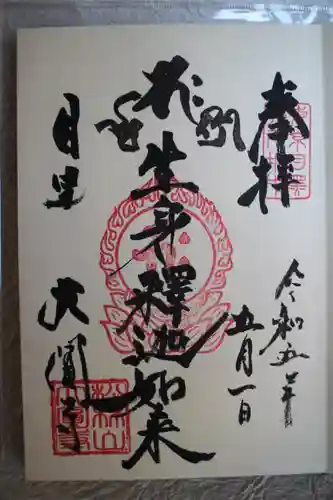 奉拝
令和五年
五月一日
生身釋迦如来
目黒
大圓寺